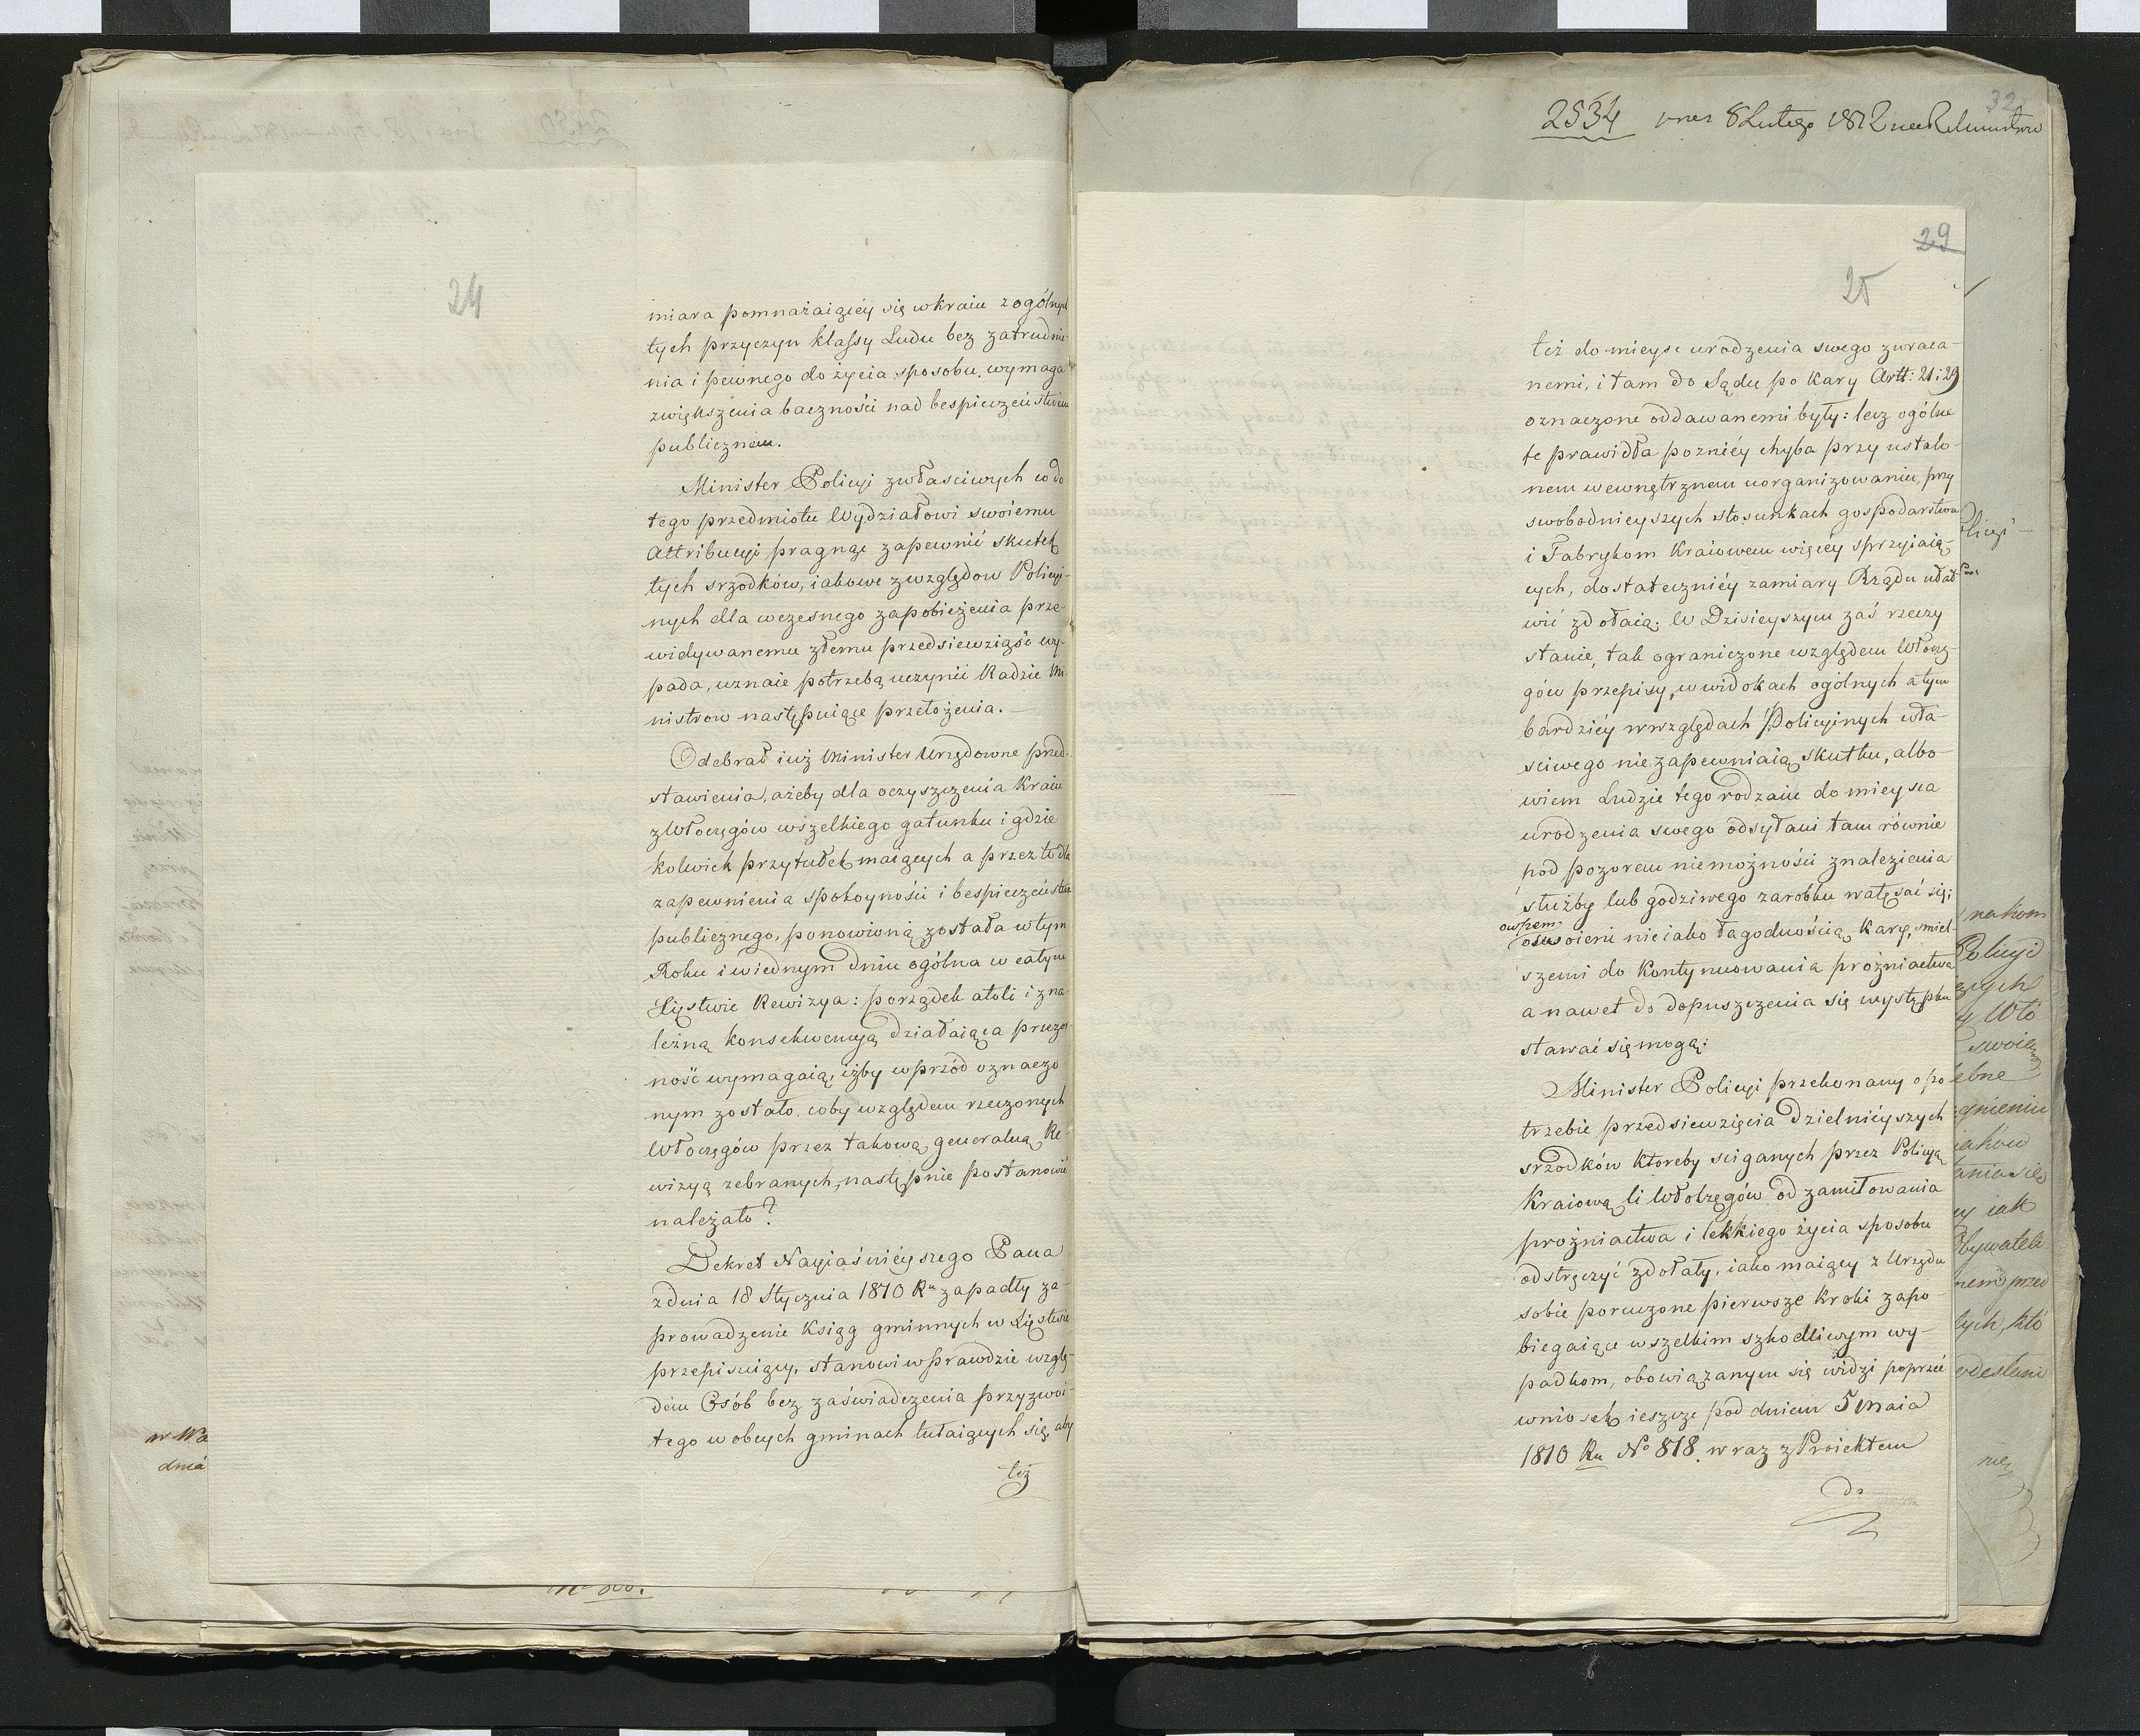 24
miara pomnażaiącéy się w kraiu z ogólnych
tych przyczyn klassy Ludu bez zatrudnie-
nia i pewnego do życia sposobu, wymaga
zwiększenia baczności nad bespieczeństwem
publicznem.
Minister Policyi z właściwych co do
tego przedmiotu Wydziałowi swoiemu
Attribucyi pragnąc zapewnić skutek
tych srzodków, iakowe z względow Policyi-
nych dla wczesnego zapobieżenia prze-
widywanemu złemu przedsiewziąść wy-
pada, uznaie potrzebą uczynić Radzie Mi-
nistrow następuiące przełożenia. —
Odebrał iuż Minister Urzędowne przed-
stawienia, ażeby dla oczyszczenia Kraiu
z Włoczęgów wszelkiego gatunku i gdzie
kolwiek przytułek maiących a przez to dla
zapewnienia spokoyności i bespieczeństwa
publicznego, ponowioną została w tym
Roku i w iednym dniu ogólna w całym
Xięstwie Rewizya: porządek atoli i zna-
leżną konsekwencyą działaiąca przezor-
ność wymagaią, iżby wprzód oznaczo
nym zostało, coby względem rzeczonych
Włoczęgów przez takową generalną Re-
wizyą zebranych, następnie postanowić
należało?
Dekret Nayiaśniéyszego Pana
z dnia 18 Stycznia 1810 Ru zapadły za-
prowadzenie Ksiąg gminnych w Xięstwie
przepisuiący, stanowi wprawdzie wzglę-
dem Osób bez zaświadczenia przyzwoi-
tego w obcych gminach tułaiących się, aby
też
2534 pres 8 Lutego 1812
32
29
25
też do mieysc urodzenia swego zwraca-
nemi, i tam do Sądu po kary Artt: 21 i 29
oznaczone oddawanemi były: lecz ogólne
te prawidła pozniéy chyba przy ustalo-
nem wewnętrznem uorganizowaniu, przy
swobodnieyszych stosunkach gospodarstwu
i Fabrykom Kraiowem więcéy sprzyiaią-
cych, dostateczniéy zamiary Rządu ułat-
wić zdołaią. W Dzisieyszym zaś rzeczy
stanie, tak ograniczone względem Włoczę-
gów przepisy, w widokach ogólnych a tym
bardziéy w względach Policyinych wła-
sciwego nie zapewniaią skutku, albo-
wiem Ludzie tego rodzaiu do mieysca
urodzenia swego odsyłani tam równie
pod pozorem niemożności znalezienia
służby lub godziwego zarobku wałęsać się;
owszem
oswoieni nieiako łagodnością kary, śmiel-
szemi do kontynuowania próżniactwa
a nawet do dopuszczenia się występku
stawać się mogą:
Minister Policyi przekonany o po
trzebie przedsiewzięcia Dzielniéyszych
srzodków ktoreby sciganych przez Policyą
Kraiową li Włoczęgów od zamiłowania
próżniactwa i lekkiego życia sposobu
odstręczyć zdołały, iako maiący z Urzędu
sobie poruczone pierwsze kroki zapo-
biegaiące wszelkim szkodliwym wy-
padkom, obowiązanym się widzi poprzeć
wniosek ieszcze pod dniem 5 Maia
1810 Ru No 818. wraz z Proiektem
do